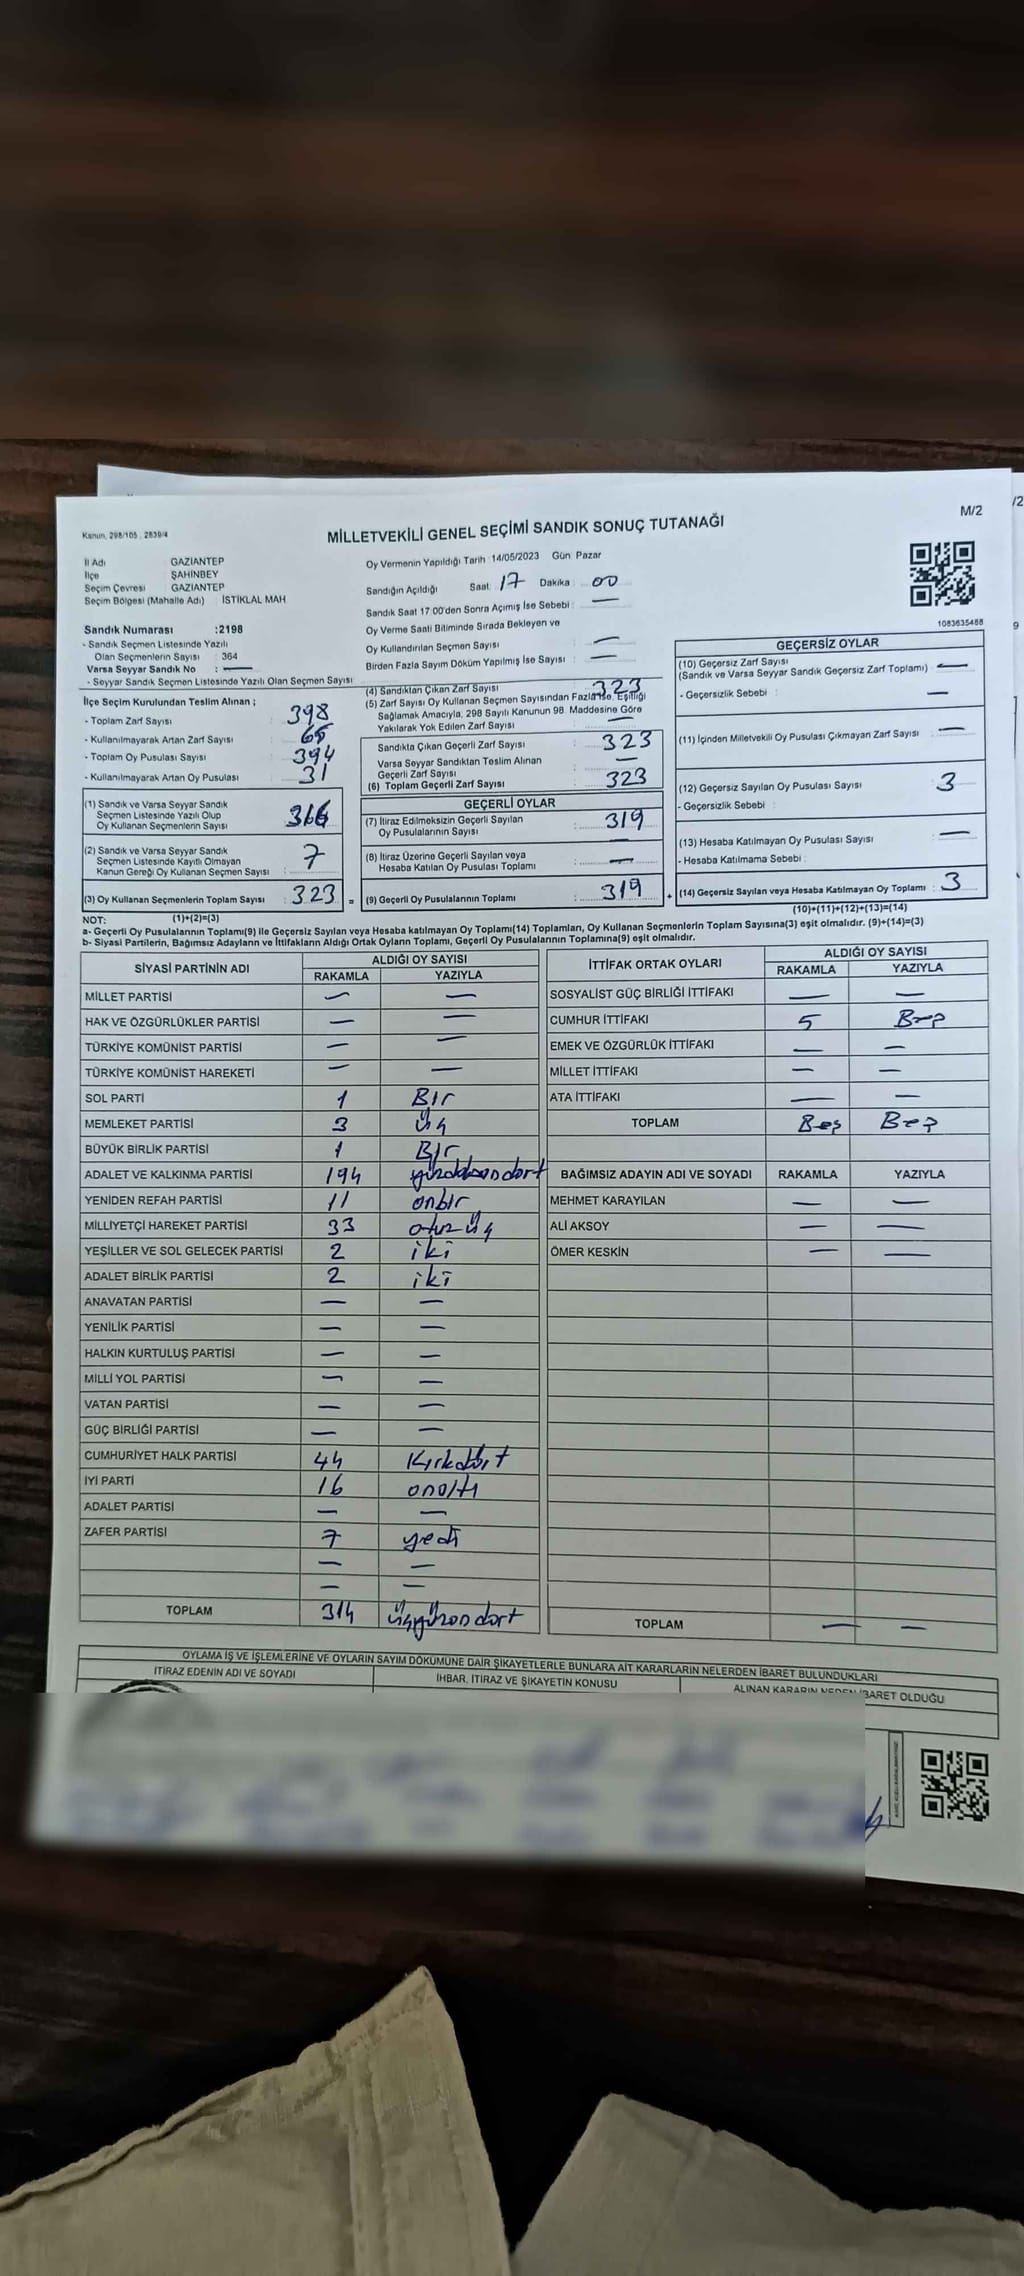 /2
M/2
Kanun, 298/105 , 2839/4
MİLLETVEKİLİ GENEL SEÇİMİ SANDIK SONUÇ TUTANAĞI
İl Adı : GAZİANTEP
İlçe : ŞAHİNBEY
Seçim Çevresi : GAZİANTEP
Seçim Bölgesi (Mahalle Adı) : İSTİKLAL MAH
Sandık Numarası :2198
- Sandık Seçmen Listesinde Yazılı
Olan Seçmenlerin Sayısı : 364
Varsa Seyyar Sandık No : —
- Seyyar Sandık Seçmen Listesinde Yazılı Olan Seçmen Sayısı :
Oy Vermenin Yapıldığı Tarih :14/05/2023 Gün: Pazar
Sandığın Açıldığı Saat: 17 Dakika : 00
Sandık Saat 17:00'den Sonra Açımış İse Sebebi : —
Oy Verme Saati Bitiminde Sırada Bekleyen ve
Oy Kullandırılan Seçmen Sayısı : —
Birden Fazla Sayım Döküm Yapılmış İse Sayısı : —
1083635468
9
İlçe Seçim Kurulundan Teslim Alınan ;
- Toplam Zarf Sayısı : 398
- Kullanılmayarak Artan Zarf Sayısı :
- Toplam Oy Pusulası Sayısı : 394
- Kullanılmayarak Artan Oy Pusulası : 31
(1) Sandık ve Varsa Seyyar Sandık
Seçmen Listesinde Yazılı Olup
Oy Kullanan Seçmenlerin Sayısı :
(2) Sandık ve Varsa Seyyar Sandık
Seçmen Listesinde Kayıtlı Olmayan
Kanun Gereği Oy Kullanan Seçmen Sayısı : 7
(3) Oy Kullanan Seçmenlerin Toplam Sayısı : 323 =
(4) Sandıktan Çıkan Zarf Sayısı : 323
(5) Zarf Sayısı Oy Kullanan Seçmen Sayısından Fazla İse, Eşitliği
Sağlamak Amacıyla, 298 Sayılı Kanunun 98. Maddesine Göre
Yakılarak Yok Edilen Zarf Sayısı : —
Sandıkta Çıkan Geçerli Zarf Sayısı : 323
Varsa Seyyar Sandıktan Teslim Alınan
Geçerli Zarf Sayısı : —
(6) Toplam Geçerli Zarf Sayısı : 323
GEÇERLİ OYLAR
(7) İtiraz Edilmeksizin Geçerli Sayılan
Oy Pusulalarının Sayısı : 319
(8) İtiraz Üzerine Geçerli Sayılan veya
Hesaba Katılan Oy Pusulası Toplamı : —
(9) Geçerli Oy Pusulalarının Toplamı : 319 +
GEÇERSİZ OYLAR
(10) Geçersiz Zarf Sayısı
(Sandık ve Varsa Seyyar Sandık Geçersiz Zarf Toplamı) : —
- Geçersizlik Sebebi : —
(11) İçinden Milletvekili Oy Pusulası Çıkmayan Zarf Sayısı : —
(12) Geçersiz Sayılan Oy Pusulası Sayısı : 3
- Geçersizlik Sebebi :
(13) Hesaba Katılmayan Oy Pusulası Sayısı : —
- Hesaba Katılmama Sebebi :
(14) Geçersiz Sayılan veya Hesaba Katılmayan Oy Toplamı : 3
NOT: (1)+(2)=(3) (10)+(11)+(12)+(13)=(14)
a- Geçerli Oy Pusulalarının Toplamı(9) ile Geçersiz Sayılan veya Hesaba katılmayan Oy Toplamı(14) Toplamları, Oy Kullanan Seçmenlerin Toplam Sayısına(3) eşit olmalıdır. (9)+(14)=(3)
b- Siyasi Partilerin, Bağımsız Adayların ve İttifakların Aldığı Ortak Oyların Toplamı, Geçerli Oy Pusulalarının Toplamına(9) eşit olmalıdır.
SİYASİ PARTİNİN ADI ALDIĞI OY SAYISI
RAKAMLA YAZIYLA
MİLLET PARTİSİ — —
HAK VE ÖZGÜRLÜKLER PARTİSİ — —
TÜRKİYE KOMÜNİST PARTİSİ — —
TÜRKİYE KOMÜNİST HAREKETİ — —
SOL PARTİ 1 Bir
MEMLEKET PARTİSİ 3 üç
BÜYÜK BİRLİK PARTİSİ 1 Bir
ADALET VE KALKINMA PARTİSİ 194
YENİDEN REFAH PARTİSİ 11 onbir
MİLLİYETÇİ HAREKET PARTİSİ 33 otuz üç
YEŞİLLER VE SOL GELECEK PARTİSİ 2 iki
ADALET BİRLİK PARTİSİ 2 iki
ANAVATAN PARTİSİ — —
YENİLİK PARTİSİ — —
HALKIN KURTULUŞ PARTİSİ — —
MİLLİ YOL PARTİSİ — —
VATAN PARTİSİ — —
GÜÇ BİRLİĞİ PARTİSİ — —
CUMHURİYET HALK PARTİSİ 44 Kırkdört
İYİ PARTİ 16 onaltı
ADALET PARTİSİ — —
ZAFER PARTİSİ 7 yedi
— —
— —
TOPLAM 314 üçyüzondört
İTTİFAK ORTAK OYLARI ALDIĞI OY SAYISI
RAKAMLA YAZIYLA
SOSYALİST GÜÇ BİRLİĞİ İTTİFAKI — —
CUMHUR İTTİFAKI 5 Beş
EMEK VE ÖZGÜRLÜK İTTİFAKI — —
MİLLET İTTİFAKI — —
ATA İTTİFAKI — —
TOPLAM Beş Beş
BAĞIMSIZ ADAYIN ADI VE SOYADI RAKAMLA YAZIYLA
MEHMET KARAYILAN — —
ALİ AKSOY — —
ÖMER KESKİN — —
TOPLAM — —
OYLAMA İŞ VE İŞLEMLERİNE VE OYLARIN SAYIM DÖKÜMÜNE DAİR ŞİKAYETLERLE BUNLARA AİT KARARLARIN NELERDEN İBARET BULUNDUKLARI
İTİRAZ EDENİN ADI VE SOYADI İHBAR, İTİRAZ VE ŞİKAYETİN KONUSU ALINAN KARARIN NEDEN İBARET OLDUĞU